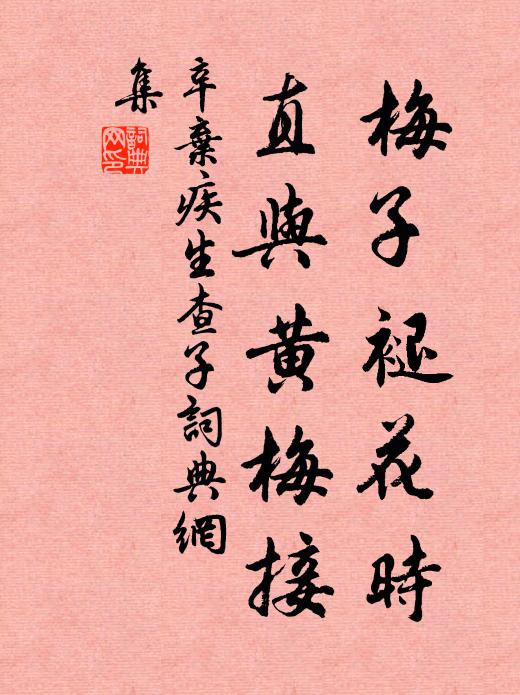 梅子褪花時
直與黃梅接
辛棄疾生查子詞典網
集
詞典網印